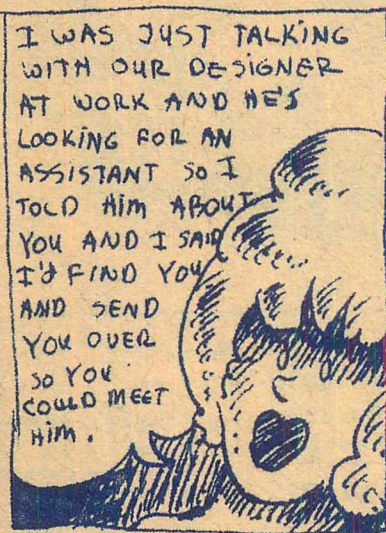 I WAS JUST TALKING
WITH OUR DESIGNER
AT WORK AND HE'S
LOOKING FOR AN
ASSISTANT SO I
TOLD HIM ABOUT
YOU AND I SAID
I'D FIND YOU
AND SEND
YOU OVER
SO YOU
COULD MEET
HIM.